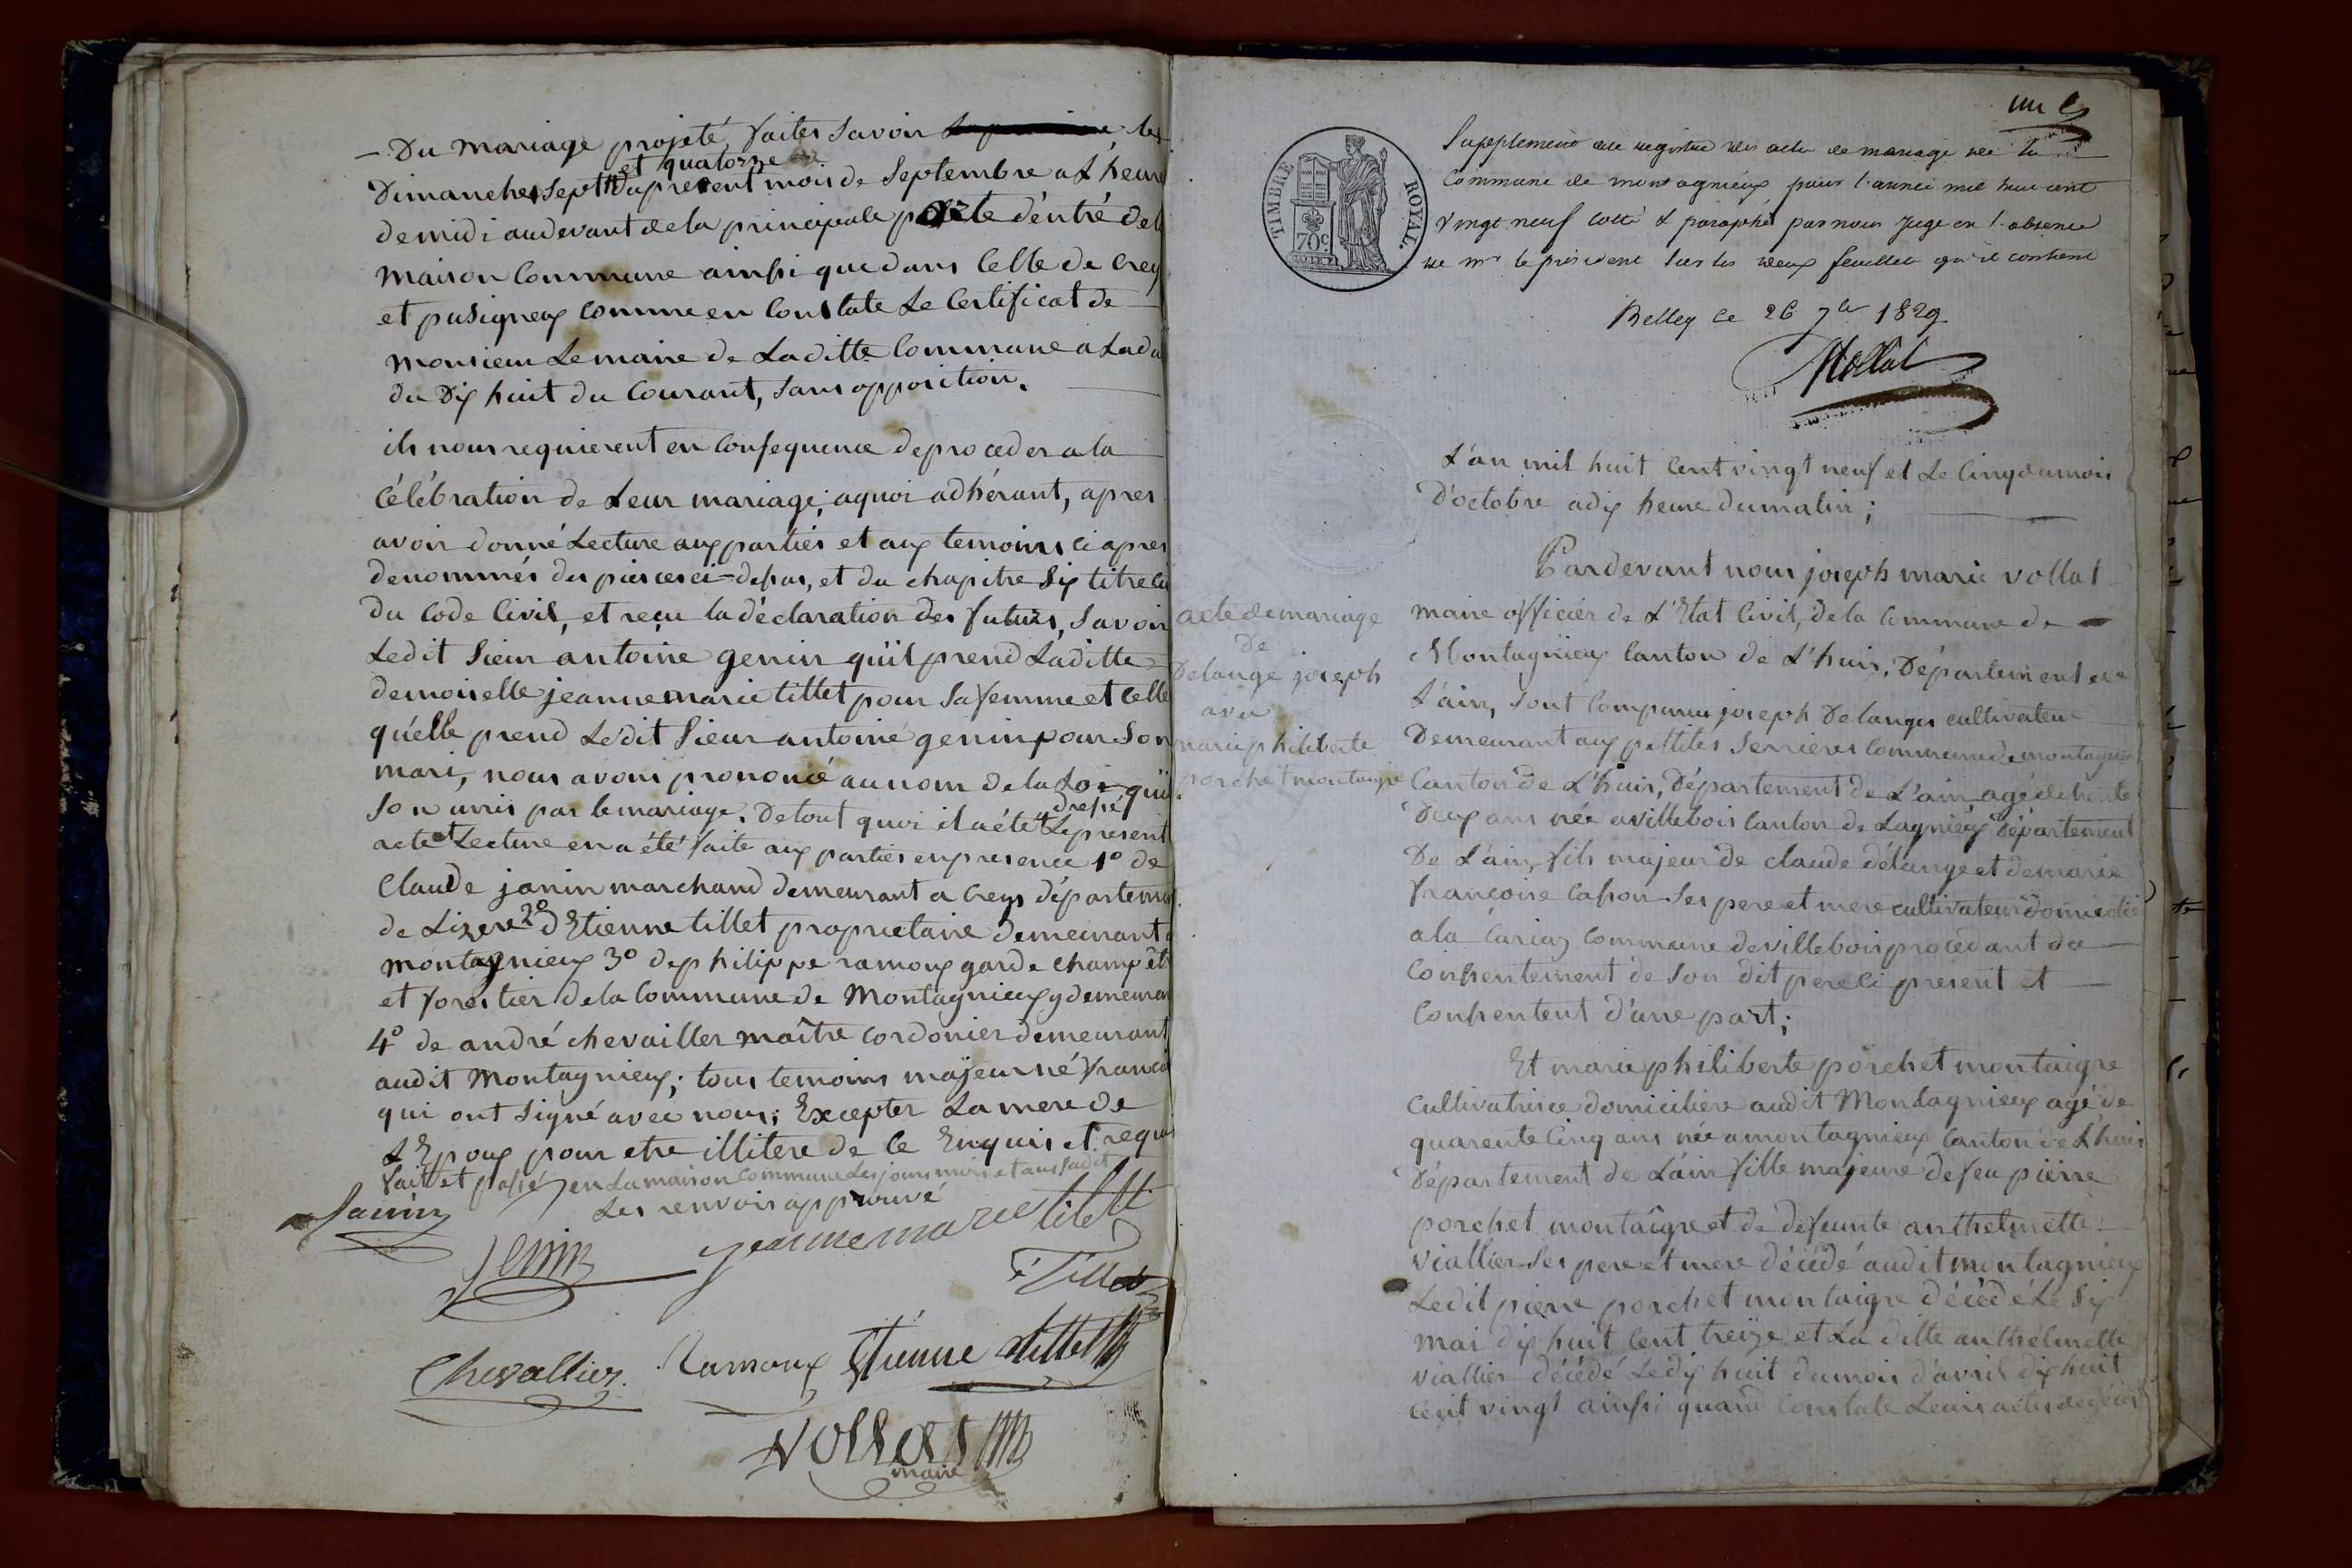 - Du mariage projeté, faites savoir les
et quatorze
Dimanches sept du present mois de Septembre a L'heure
de midi audevant de la principale porte d'entré de la
maison Commune ainsi que dans Celle de Creys
et pusigneux comme en Constate Le Certificat de
monsieur Le maire de Laditte Commune a La da
du Dix huit du Courant, sans opposition.
ils nous requierent en Consequence de proceder a la
Célébration de Leur mariage; aquoi adhérant, apres
avoir donné Lecture aux parties et aux temoins ci apres
denommés des pieces ci-dessus, et du chapitre Six titre
du Code Civil, et reçu la déclaration des futurs, Savoir
Ledit Sieur antoine genin qu'il prend Laditte
demoiselle jeanne marie tillet pour sa femme et Celle
qu'elle prend Ledit Sieur antoine genin pour Son
mari, nous avons prononcé au nom de la Loi qu'il
Son unis par le mariage. De tout quoi il a été dressé Le present
acte et Lecture en a été faite aux parties en presence 1° de
Claude janin marchand demeurant a Creys départem
de Lizere 2° d'Etienne tillet proprietaire demeurant
montagnieux 3° de philippe ramoux garde champêt
et forestier de la Commune de Montagnieux y demeuran
4° de andré chevailler maître cordonier demeurant
audit Montagnieux; tous temoins majeur né françai
qui ont signé avec nous; Excepter La mere de
L'Epoux pour etre illitere de Ce Enquis et requis
fait et passé en La maison Commune Les jours mois et ans sudit
Les renvois approuvé
Janin
Genin jeanne marie tilett
Tillet
Chevallier Ramoux Etienne tillet
Vollat
maire
un
Supplement au registre des actes de mariage de la
Commune de montagnieux pour l'année mil huit cent
vingt neuf cotté & paraphé par nous Juge en l'absence
de Mr le president sur les deux feuillets qu'il contient
Belley ce 26 7bre 1829
TIMBRE ROYAL.
70c
L'an mil huit Cent vingt neuf et Le Cinq du mois
D'octobre a dix heure du matin;
Pardevant nous joseph marie vollat
maire officier de L'Etat Civil, de la Commune de
Montagnieux Canton de L'huis, Département de
L'ain, sont Comparus joseph Delanges cultivateur
Demeurant aux pettites Serrieres Commune de montagnieux
Canton de L'huis, Département de L'ain agé de trente
Deux ans née a villebois Canton de Lagnieux Département
De L'ain, fils majeur de claude délange et de marie
françoise Cahon Ses pere et mere cultivateur Domicilié
a la Cariaz Commune de villebois procédant du
Consentement de Son dit pere Ci present et
Consentent d'une part;
Et marie philiberte porchet montaigre
Cultivatrice domicilière audit Montagnieux agé de
quarente Cinq ans née a montagnieux Canton de L'huis
Département de L'ain fille majeure de feu pierre
porchet montaigre et de défeunte anthelmette
viallier Ses pere et mere décédé audit montagnieux
Ledit pierre porchet montaigre décédé Le Six
mai dix huit Cent treize et La ditte anthelmette
viallier décédé Le dix huit du mois d'avril dix huit
Cent vingt ainsi quand Constate Leurs actes de déces
acte de mariage
De
Delange joseph
avec
marie philiberte
porchet montaigre